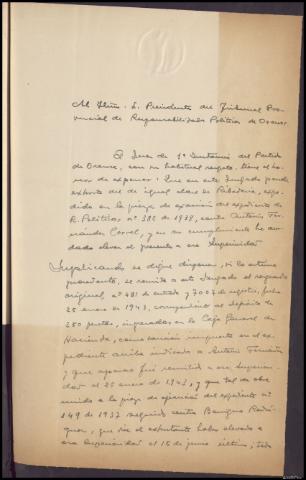 Al Iltmo. S. Presidente del Tribunal Pro-
vincial de Responsabilidades Políticas de Orense.
El Juez de 1ª Instancia del Partido
de Orense, con su habitual respeto, tiene el ho-
nor de exponer: Que en este Juzgado pende
exhorto del de igual clase de Ribadavia, expe-
dido en la pieza de exacción del expediente de
R. Políticas nº 388 de 1938, contra Antonio Fer-
nández Corral, y en su cumplimiento he acor-
dado elevar el presente a esa Superioridad
Suplicando se digne disponer, si lo estima
procedente, se remita a este Juzgado el resguardo
original, nº 481 de entrada y 7007 de registro, fecha
25 enero de 1943, correspondiente al depósito de
250 pesetas, ingresadas en la Caja General de
Hacienda, como sanción impuesta en el ex-
pediente arriba indicado a Antonio Fernández
y que aparece fué remitido a esa Superiori-
dad el 25 enero de 1943, y que tal de obre
unido a la pieza de exacción del expediente nº
149 de 1937 seguido contra Benigno Rodrí-
guez, que dice el exhortante haber elevado a
esa Superioridad el 15 de junio último, todo